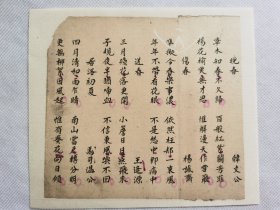 晚春 韓文公
草木知春不久歸 百般紅紫鬥芳菲
楊花榆莢無才思 惟解漫天作雪飛
傷春 楊誠齋
準擬今春樂事濃 依然枉却一東風
年年不帶看花眼 不是愁中即病中
送春 王逢源
三月殘花落更開 小簷日日燕飛來
子規夜半猶啼血 不信東風喚不回
初夏 溫公
四月清和雨乍晴 南山當戶轉分明
更無柳絮因風起 惟有葵花向日傾